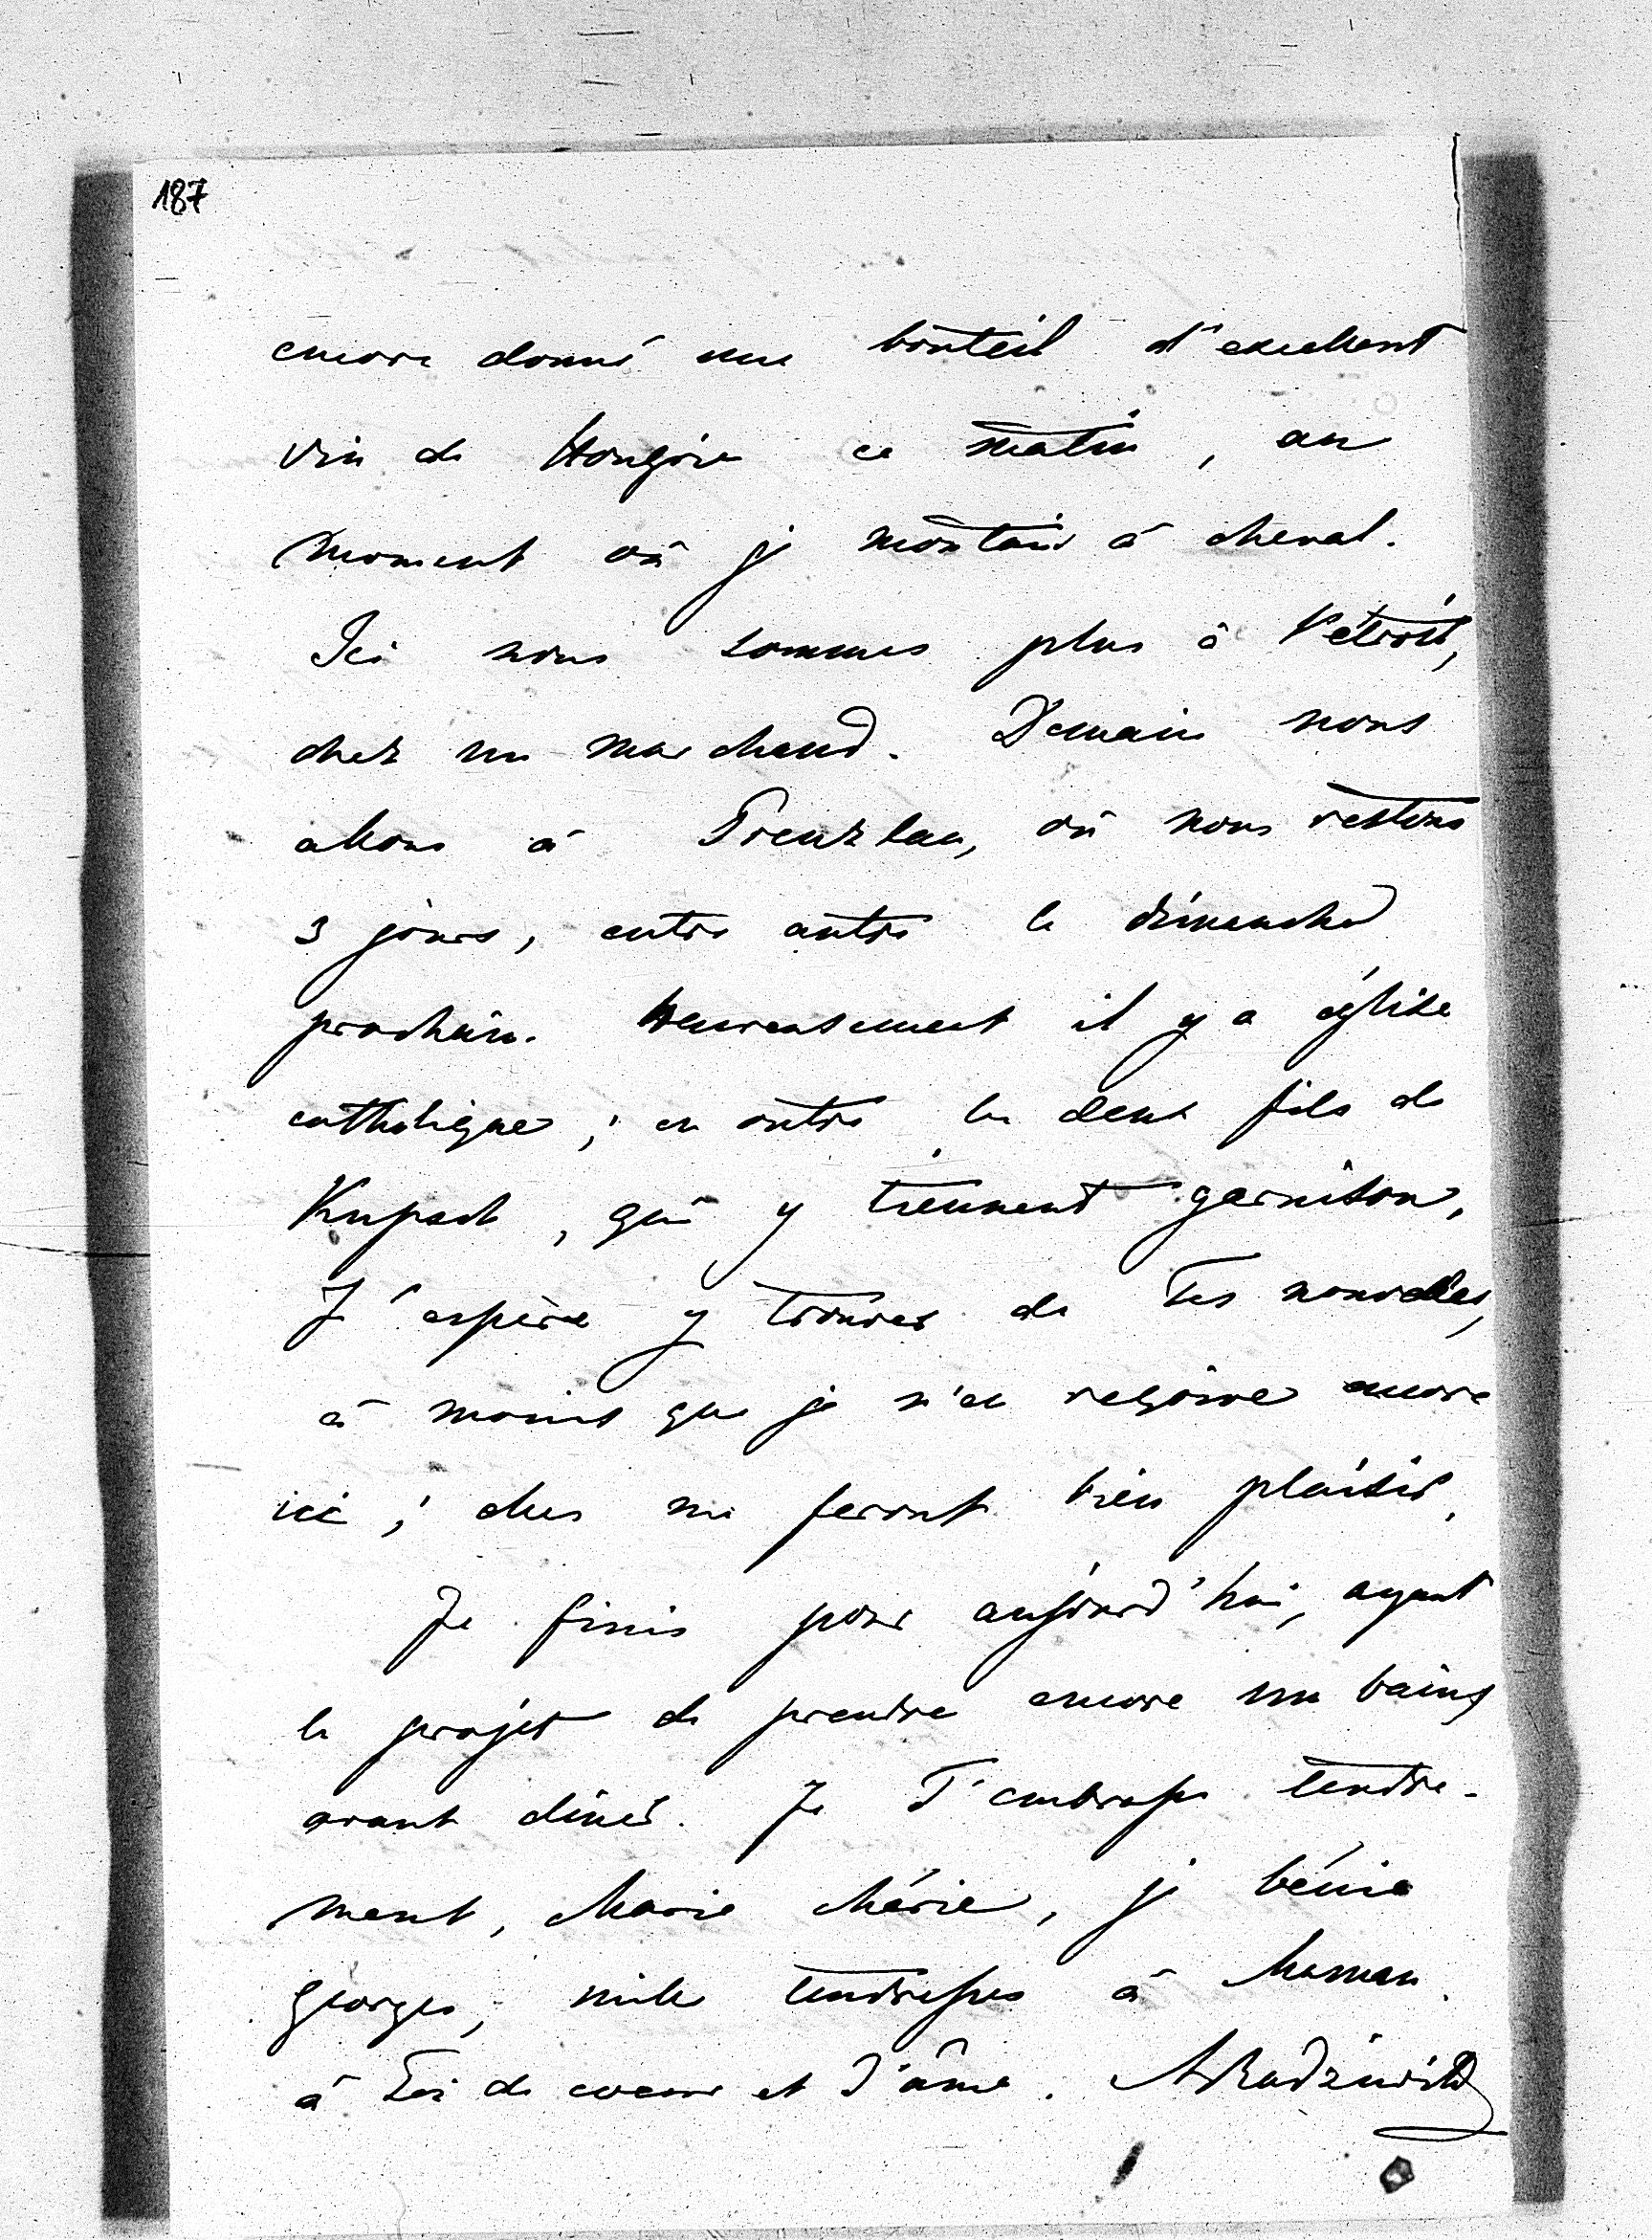 187
encore donné une bouteil d'excellent
vin de Hongrie ce matin, au
moment où je montais à cheval.
Ici nous sommes plus à l'étroit,
chez un marchand. Demain nous
allons à Prenzlau, où nous restons
3 jours, entre autre le dimanche
prochain. Heureusement il y a église
catholique; en outre les deux fils de
Knpsch, qui y tiennent garnison.
J'espère y trouver de Tes nouvelles,
à moins que je n'en reçoive encore
ici; elles me feront bien plaisir.
Je finis pour aujourd'hui, ayant
le projet de prendre encore un bains
avant dîner. Je T'embrasse tendre-
ment, Marie chérie, je bénie
Georges, mille tendresses à Maman.
à Toi de coeur et d'âme. ARadziwill